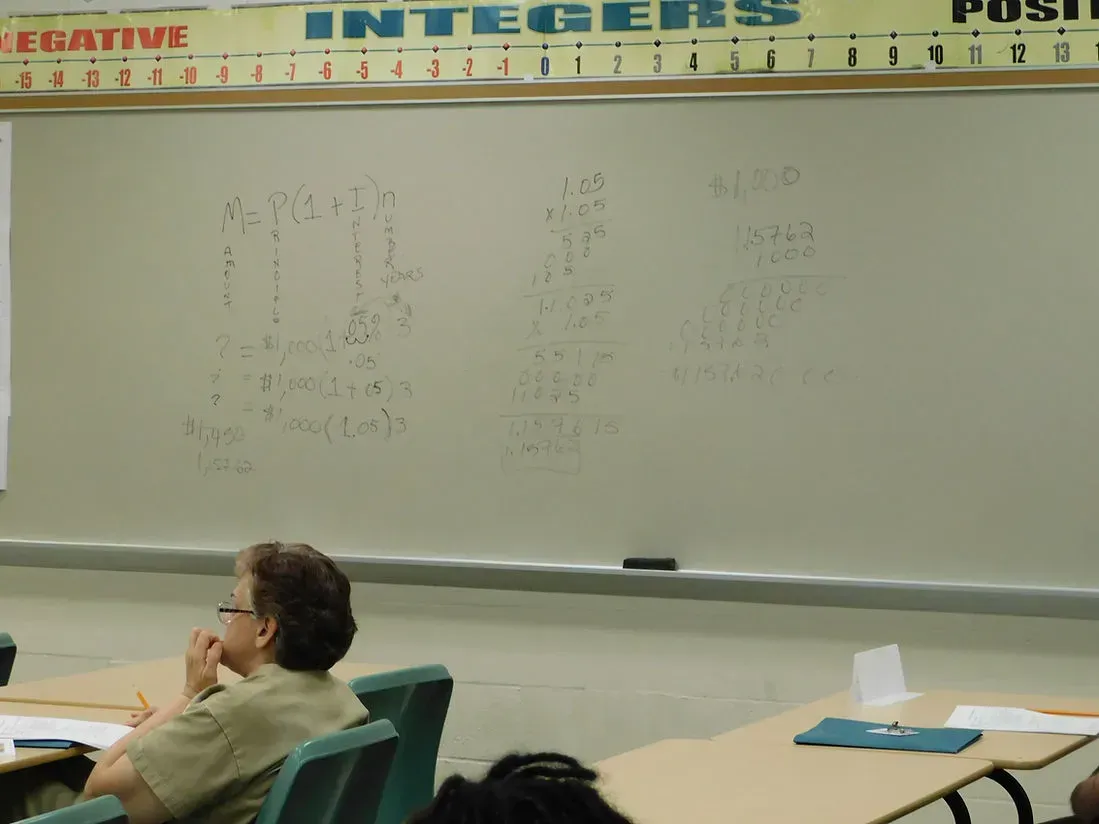 NEGATIVE INTEGERS POSITI
-15 -14 -13 -12 -11 -10 -9 -8 -7 -6 -5 -4 -3 -2 -1 0 1 2 3 4 5 6 7 8 9 10 11 12 13 1
M = P(1 + I)n
AMOUNT
PRINCIPLE
INTEREST
NUMBER YEARS
.05% 3
? = $1,000(1
.05
? = $1,000(1+.05)3
? = $1,000(1.05)3
$1,450
1,15762
1.05
x 1.05
525
000
105
1.1025
x 1.05
55125
00000
11025
1.157615
1.15762
$1,000
1.15762
1000
000000